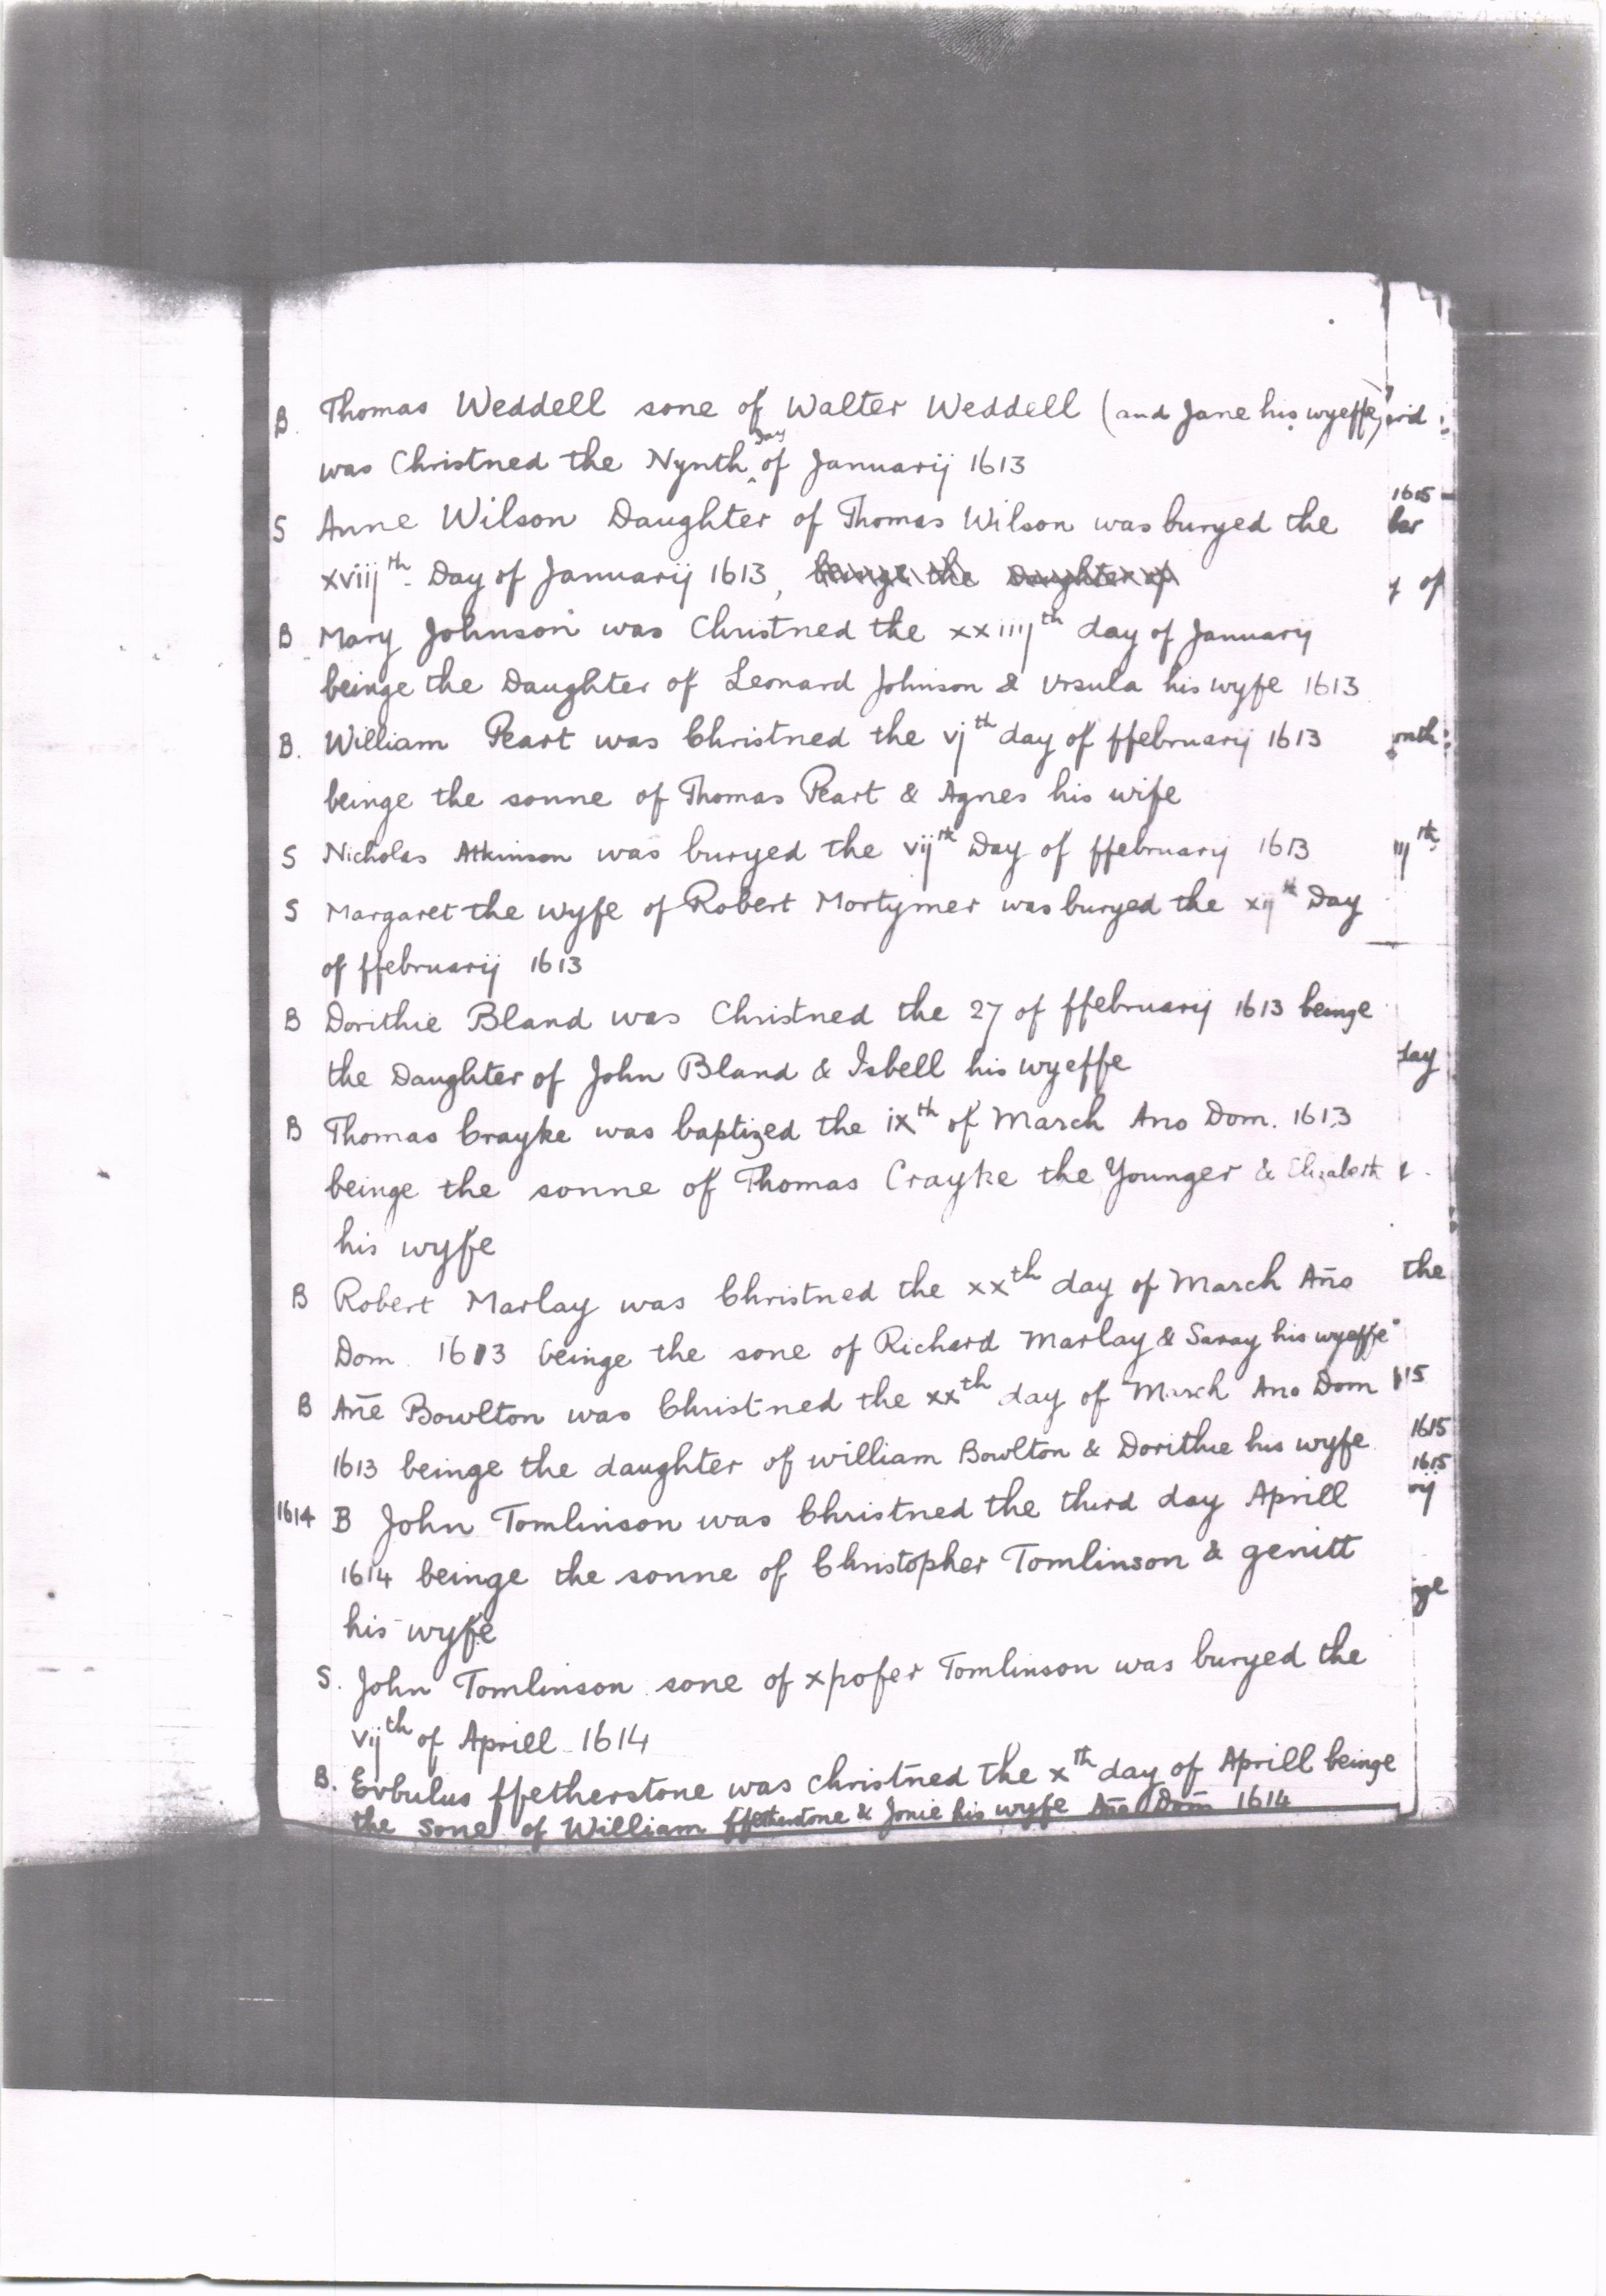 B. Thomas Weddell sone of Walter Weddell (and Jane his wyeffe)
was Christned the Nynth day of Januarij 1613
S Anne Wilson Daughter of Thomas Wilson was buryed the
xviijth Day of Januarij 1613, beinge the Daughter of
B Mary Johnson was Christned the xxiiijth day of Januarij
beinge the Daughter of Leonard Johnson & Vrsula his wyfe 1613
B. William Peart was Christned the vjth day of ffebruarij 1613
beinge the sonne of Thomas Peart & Agnes his wife
S Nicholas Atkinson was buryed the vijth Day of ffebruarij 1613
S Margaret the wyfe of Robert Mortymer was buryed the xijth Day
of ffebruarij 1613
B Dorithie Bland was Christned the 27 of ffebruarij 1613 beinge
the Daughter of John Bland & Isbell his wyeffe
B Thomas Crayke was baptized the ixth of March Ano Dom. 1613
beinge the sonne of Thomas Crayke the Younger & Elizabeth
his wyfe
B Robert Marlay was Christned the xxth day of March Año
Dom 1613 beinge the sone of Richard Marlay & Saray his wyeffe
B Añe Bowlton was Christned the xxth day of March Ano Dom
1613 beinge the daughter of william Bowlton & Dorithie his wyfe
1614 B John Tomlinson was Christned the third day Aprill
1614 beinge the sonne of Christopher Tomlinson & genitt
his wyfe
S. John Tomlinson sone of xpofer Tomlinson was buryed the
vijth of Aprill 1614
B. Evbulus ffetherstone was christned the xth day of Aprill beinge
the sone of William ffetherstone & Jonie his wyfe Ano Dom 1614
1615
ber
y of
onth
iijth
day
the
15
1615
1615
rij
nge